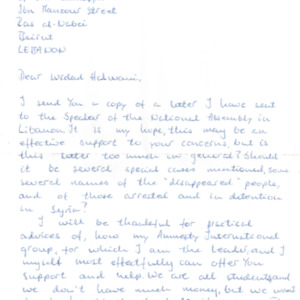 Ibn Manzour Street
Ras al-Nabei
Beirut
LEBANON
Dear Wedad Halwani,
I send You a copy of a later I have sent
to the Speaker of the National Assembly in
Libanon. It is my hope, this may be an
effective support to your concerns, but is
this later too much in general? Should
it be several special cases mentioned, some
several names of the "disappeared" people,
and of those arrested and in detention
in Syria?
I will be thankful for practical
advices of, how my Amnesty International
group, for which I am the leader, and I
myself most effectfully can offer You
support and help. We are all students and
we don't have much money, but we want